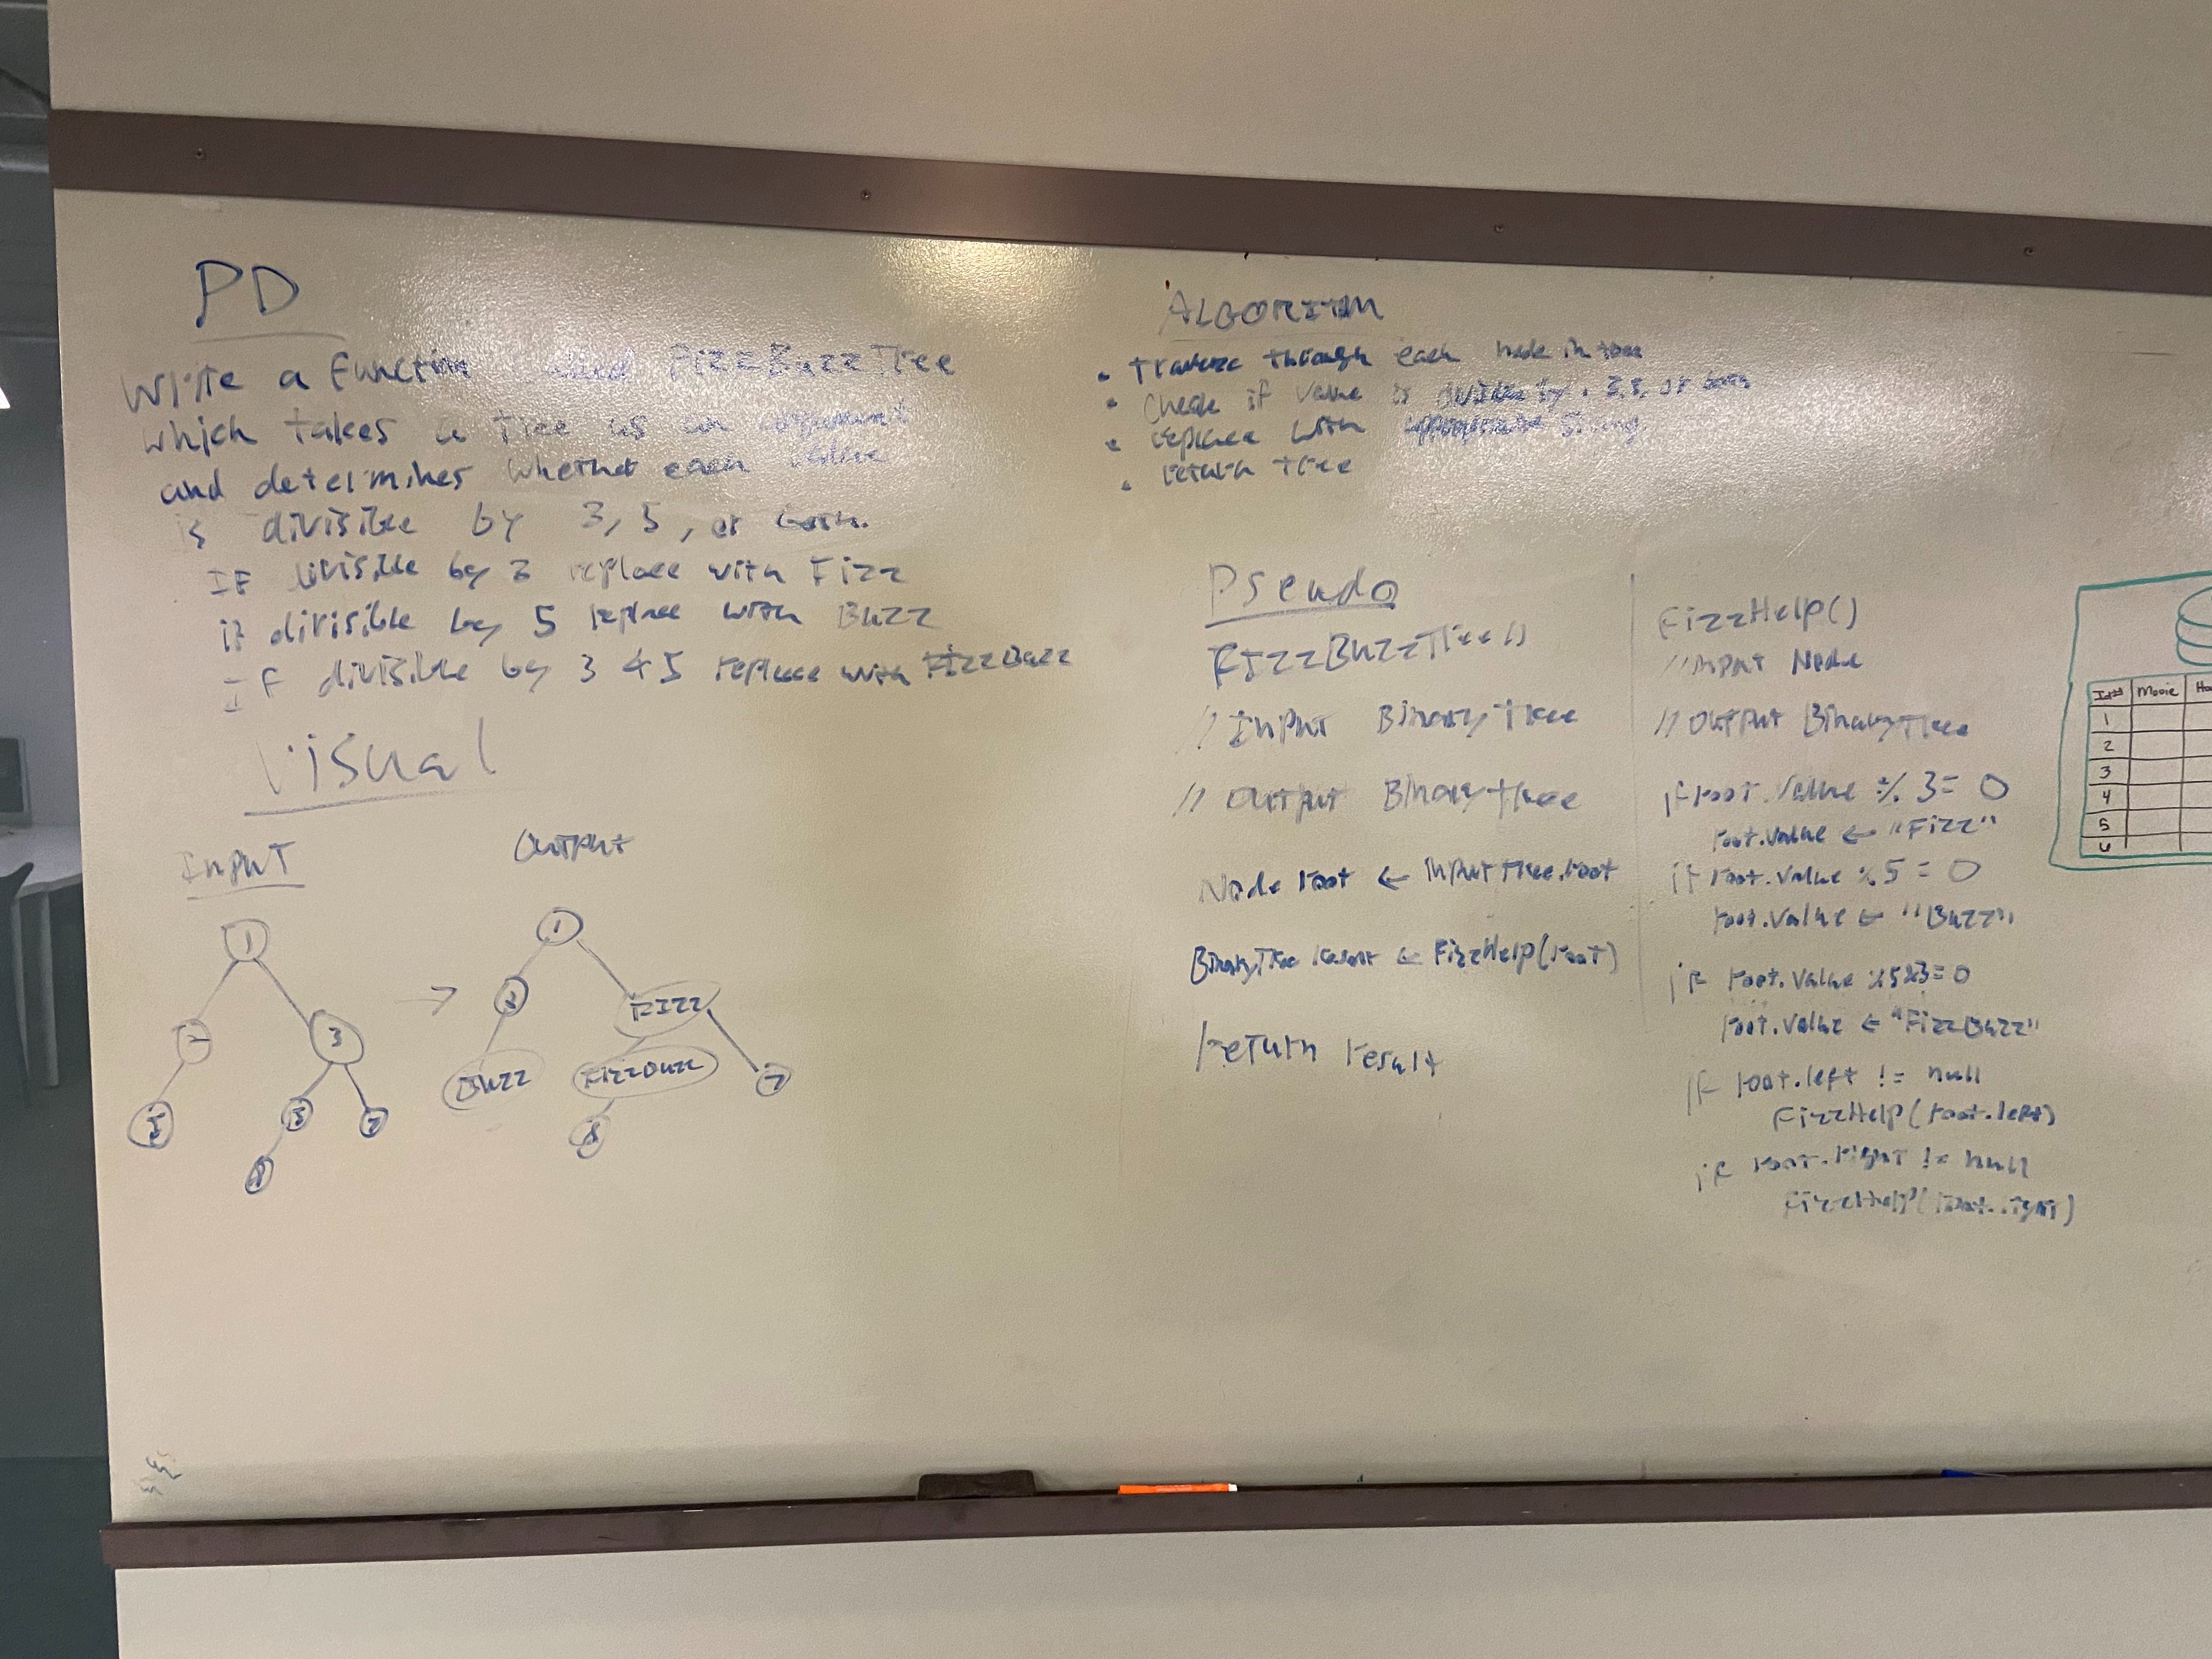 PD
Write a function called FizzBuzzTree
which takes a tree as an argument
and determines whether each value
is divisible by 3, 5, or both.
IF divisible by 3 replace with Fizz
if divisible by 5 replace with Buzz
IF divisible by 3 & 5 replace with FizzBuzz
Visual
INPUT
OUTPUT
1
2
3
5
7
8
→
1
2
FIZZ
Buzz
FizzBuzz
7
8
ALGORITHM
• Traverse through each node in tree
• Check if value is divisible by 3, 5, or both
• replace with appropriate string
• return tree
Pseudo
FIZZBuzzTree()
// INPUT BinaryTree
// OUTPUT BinaryTree
Node root ← InputTree.root
BinaryTree result ← FizzHelp(root)
return result
FizzHelp()
// INPUT Node
// OUTPUT BinaryTree
if root.value % 3 = 0
root.value ← "Fizz"
if root.value % 5 = 0
root.value ← "Buzz"
if root.value %5%3=0
root.value ← "FizzBuzz"
if root.left != null
FizzHelp(root.left)
if root.right != null
FizzHelp(root.right)
Id# Movie
1
2
3
4
5
6